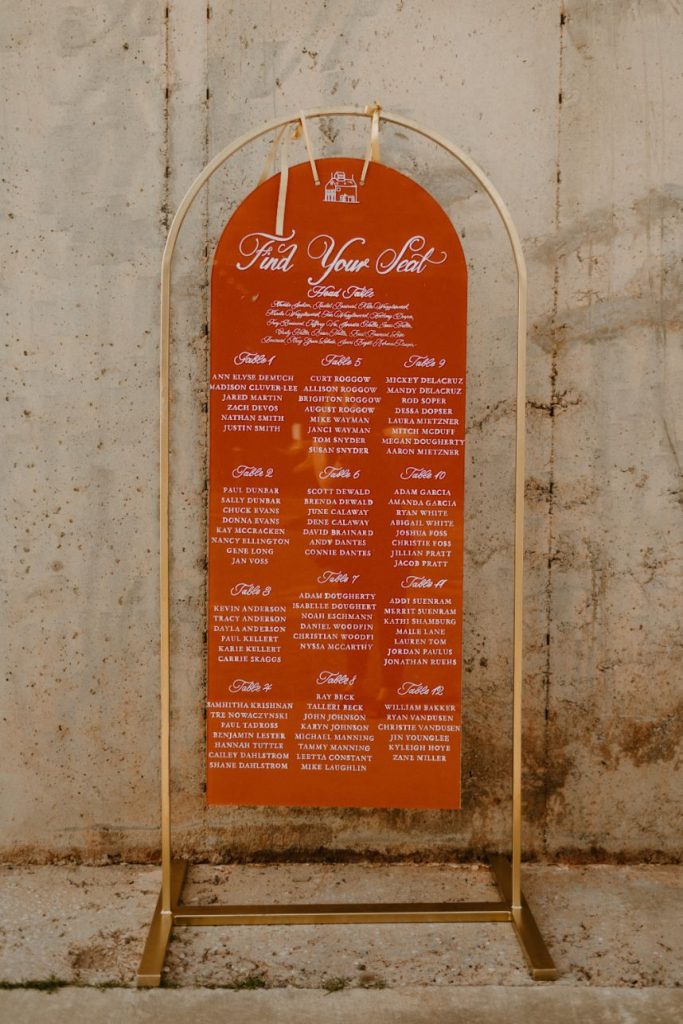 Find Your Seat
Head Table
Table 1
ANN ELYSE DEMUCH
MADISON CLUVER-LEE
JARED MARTIN
ZACH DEVOS
NATHAN SMITH
JUSTIN SMITH
Table 2
PAUL DUNBAR
SALLY DUNBAR
CHUCK EVANS
DONNA EVANS
KAY MCCRACKEN
NANCY ELLINGTON
GENE LONG
JAN VOSS
Table 3
KEVIN ANDERSON
TRACY ANDERSON
DAYLA ANDERSON
PAUL KELLERT
KARIE KELLERT
CARRIE SKAGGS
Table 4
SAMHITHA KRISHNAN
TRE NOWACZYNSKI
PAUL TADROSS
BENJAMIN LESTER
HANNAH TUTTLE
CAILEY DAHLSTROM
SHANE DAHLSTROM
Table 5
CURT ROGGOW
ALLISON ROGGOW
BRIGHTON ROGGOW
AUGUST ROGGOW
MIKE WAYMAN
JANCI WAYMAN
TOM SNYDER
SUSAN SNYDER
Table 6
SCOTT DEWALD
BRENDA DEWALD
JUNE CALAWAY
DENE CALAWAY
DAVID BRAINARD
ANDY DANTES
CONNIE DANTES
Table 7
ADAM DOUGHERTY
ISABELLE DOUGHERT
NOAH ESCHMANN
DANIEL WOODFIN
CHRISTIAN WOODFI
NYSSA MCCARTHY
Table 8
RAY BECK
TALLERI BECK
JOHN JOHNSON
KARYN JOHNSON
MICHAEL MANNING
TAMMY MANNING
LEETTA CONSTANT
MIKE LAUGHLIN
Table 9
MICKEY DELACRUZ
MANDY DELACRUZ
ROD SOPER
DESSA DOPSER
LAURA MIETZNER
MITCH MCDUFF
MEGAN DOUGHERTY
AARON MIETZNER
Table 10
ADAM GARCIA
AMANDA GARCIA
RYAN WHITE
ABIGAIL WHITE
JOSHUA FOSS
CHRISTIE FOSS
JILLIAN PRATT
JACOB PRATT
Table 11
ADDI SUENRAM
MERRIT SUENRAM
KATHI SHAMBURG
MAILE LANE
LAUREN TOM
JORDAN PAULUS
JONATHAN RUEHS
Table 12
WILLIAM BAKKER
RYAN VANDUSEN
CHRISTIE VANDUSEN
JIN YOUNGLEE
KYLEIGH HOYE
ZANE MILLER